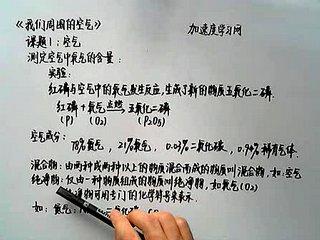 《我们周围的空气》
加速度学习网
课题1:空气
测定空气中氧气的含量:
实验:
红磷与空气中的氧气发生反应,生成了新的物质五氧化二磷
红磷+氧气 点燃→ 五氧化二磷
(P) (O₂) (P₂O₅)
空气成分:
78%氮气, 21%氧气, 0.03%二氧化碳, 0.94%稀有气体.
混合物:由两种或两种以上的物质混合而成的物质叫混合物,如:空气
纯净物:仅由一种物质组成的物质叫纯净物,如氧气(O₂)
纯净物可用专门的化学符号来表示.
如:氮气: